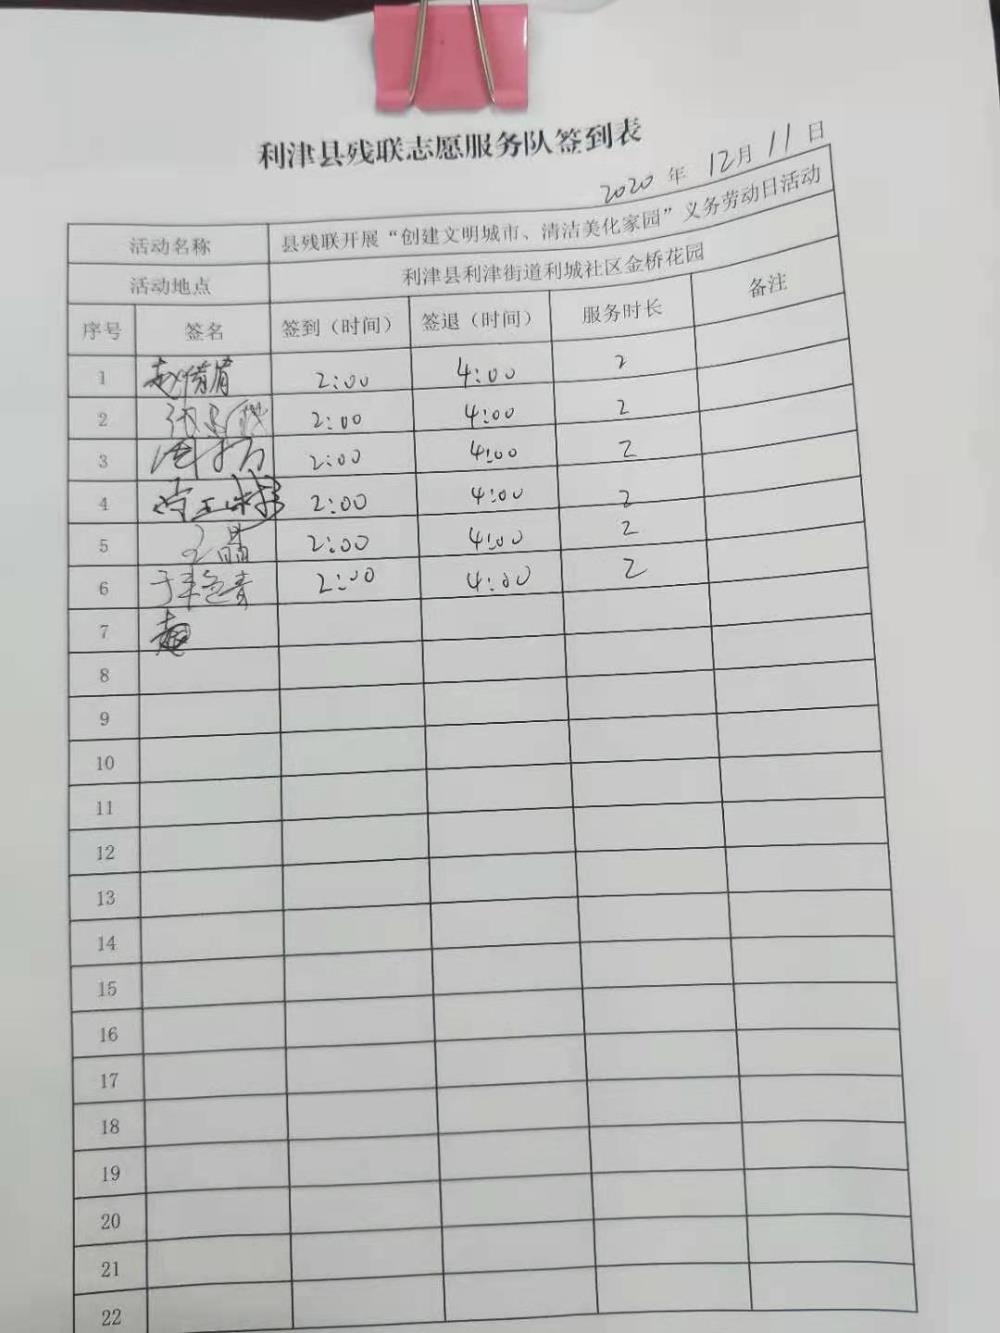 利津县残联志愿服务队签到表
2020 年 12月 11 日
活动名称 县残联开展“创建文明城市、清洁美化家园”义务劳动日活动
活动地点 利津县利津街道利城社区金桥花园
序号 签名 签到（时间） 签退（时间） 服务时长 备注
1 赵 2:00 4:00 2
2 张 2:00 4:00 2
3 2:00 4:00 2
4 2:00 4:00 2
5 晶 2:00 4:00 2
6 于 2:00 4:00 2
7
8
9
10
11
12
13
14
15
16
17
18
19
20
21
22